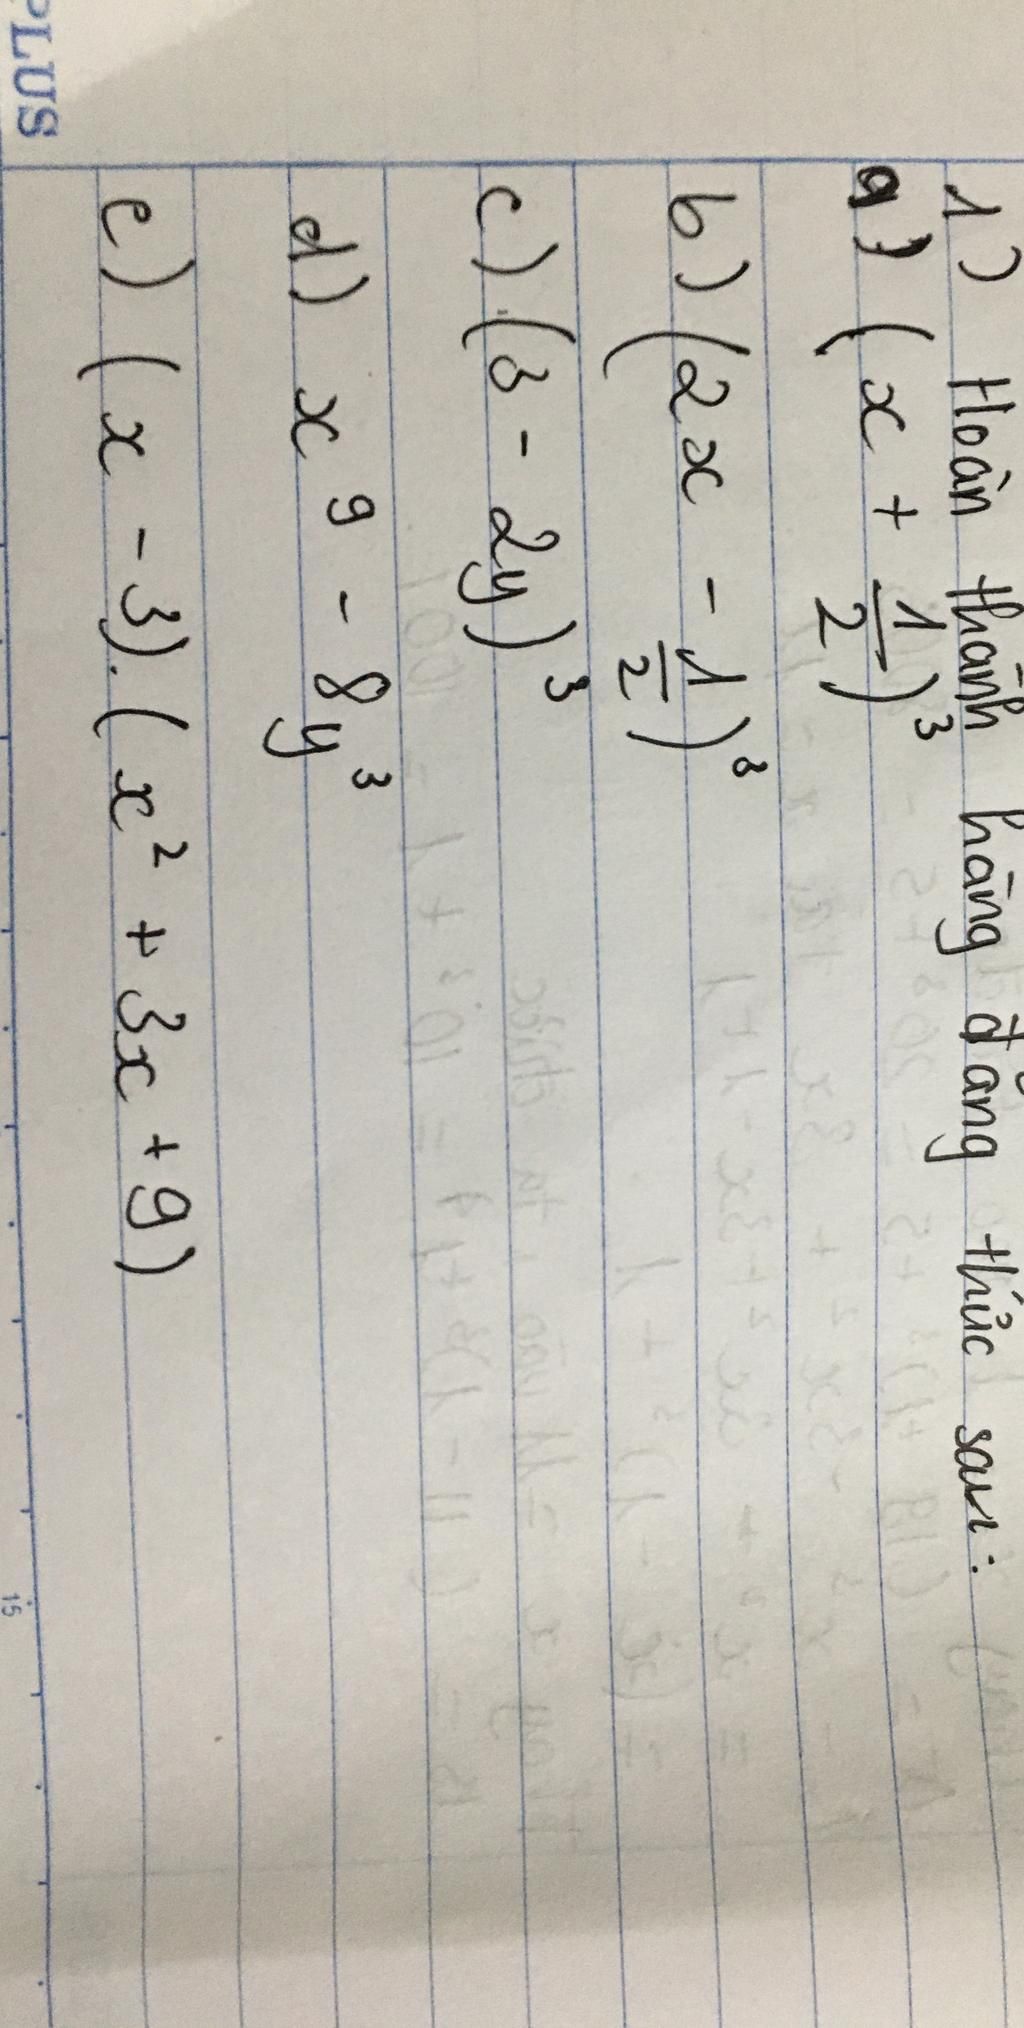 PLUS
1) Hoàn thành hằng đẳng thức sau:
a) (x + 1/2)³
b) (2x - 1/2)³
c) (3 - 2y)³
d) x⁹ - 8y³
e) (x - 3).(x² + 3x + 9)
15